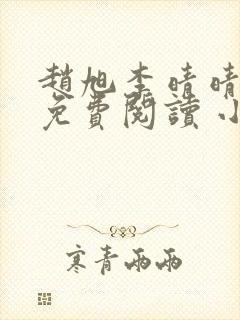 趙旭李晴晴
免費閱讀小
寒青雨雨